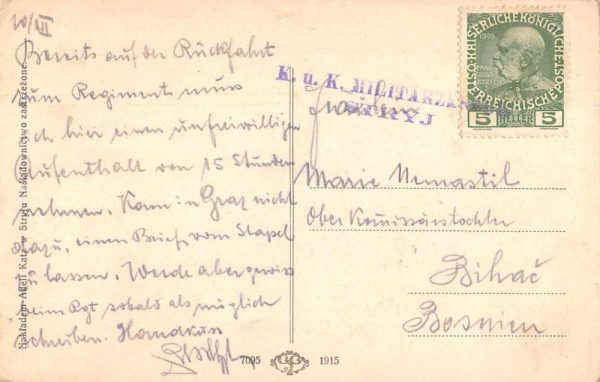 10/VII
Bereits auf der Rückfahrt
zum Regiment muss
ich hier einen unfreiwilligen
Aufenthalt von 15 Stunden
nehmen. Kam in Graz nicht
dazu, einen Brief vom Stapel
zu lassen. Werde aber gewiss
beim Rgt sobald als möglich
schreiben. Handkuss
Nakładem Adeli Katz w Stryju Naśladownictwo zastrzeżone.
K. u. K. MILITÄRZEN
STRYJ
KAISERLICHE KÖNIGLICHE
ÖSTERREICHISCHE POST
1908
5 HELLER 5
Marie Nemastil
Ober Komissärstochter
Bihać
Bosnien
7095 1915